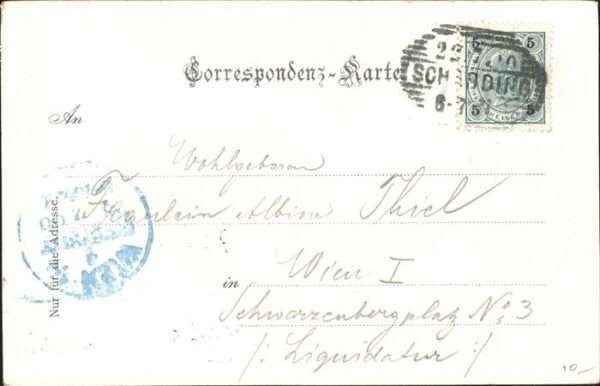 Correspondenz-Karte
5 5
5 5
SCH DING
An
Wohlgeboren
Fräulein Albine Thiel
in Wien I
Schwarzenbergplatz No. 3
/: Liquidatur :/
Nur für die Adresse.
WIEN
10-